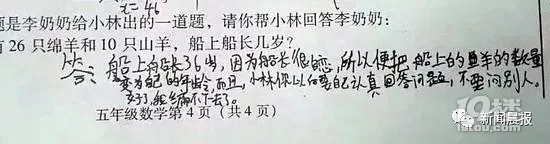 x = 46
题是李奶奶给小林出的一道题，请你帮小林回答李奶奶：
有 26 只绵羊和 10 只山羊，船上船长几岁？
答：船上船长36岁，因为船长很恋，所以便把船上的羊的数量
变为自己的年龄，而且，小林你以后要自己认真回答问题，不要问别人。
编不下去了。
五年级数学第 4 页（共 4 页）
10球
10tou.com
新闻晨报